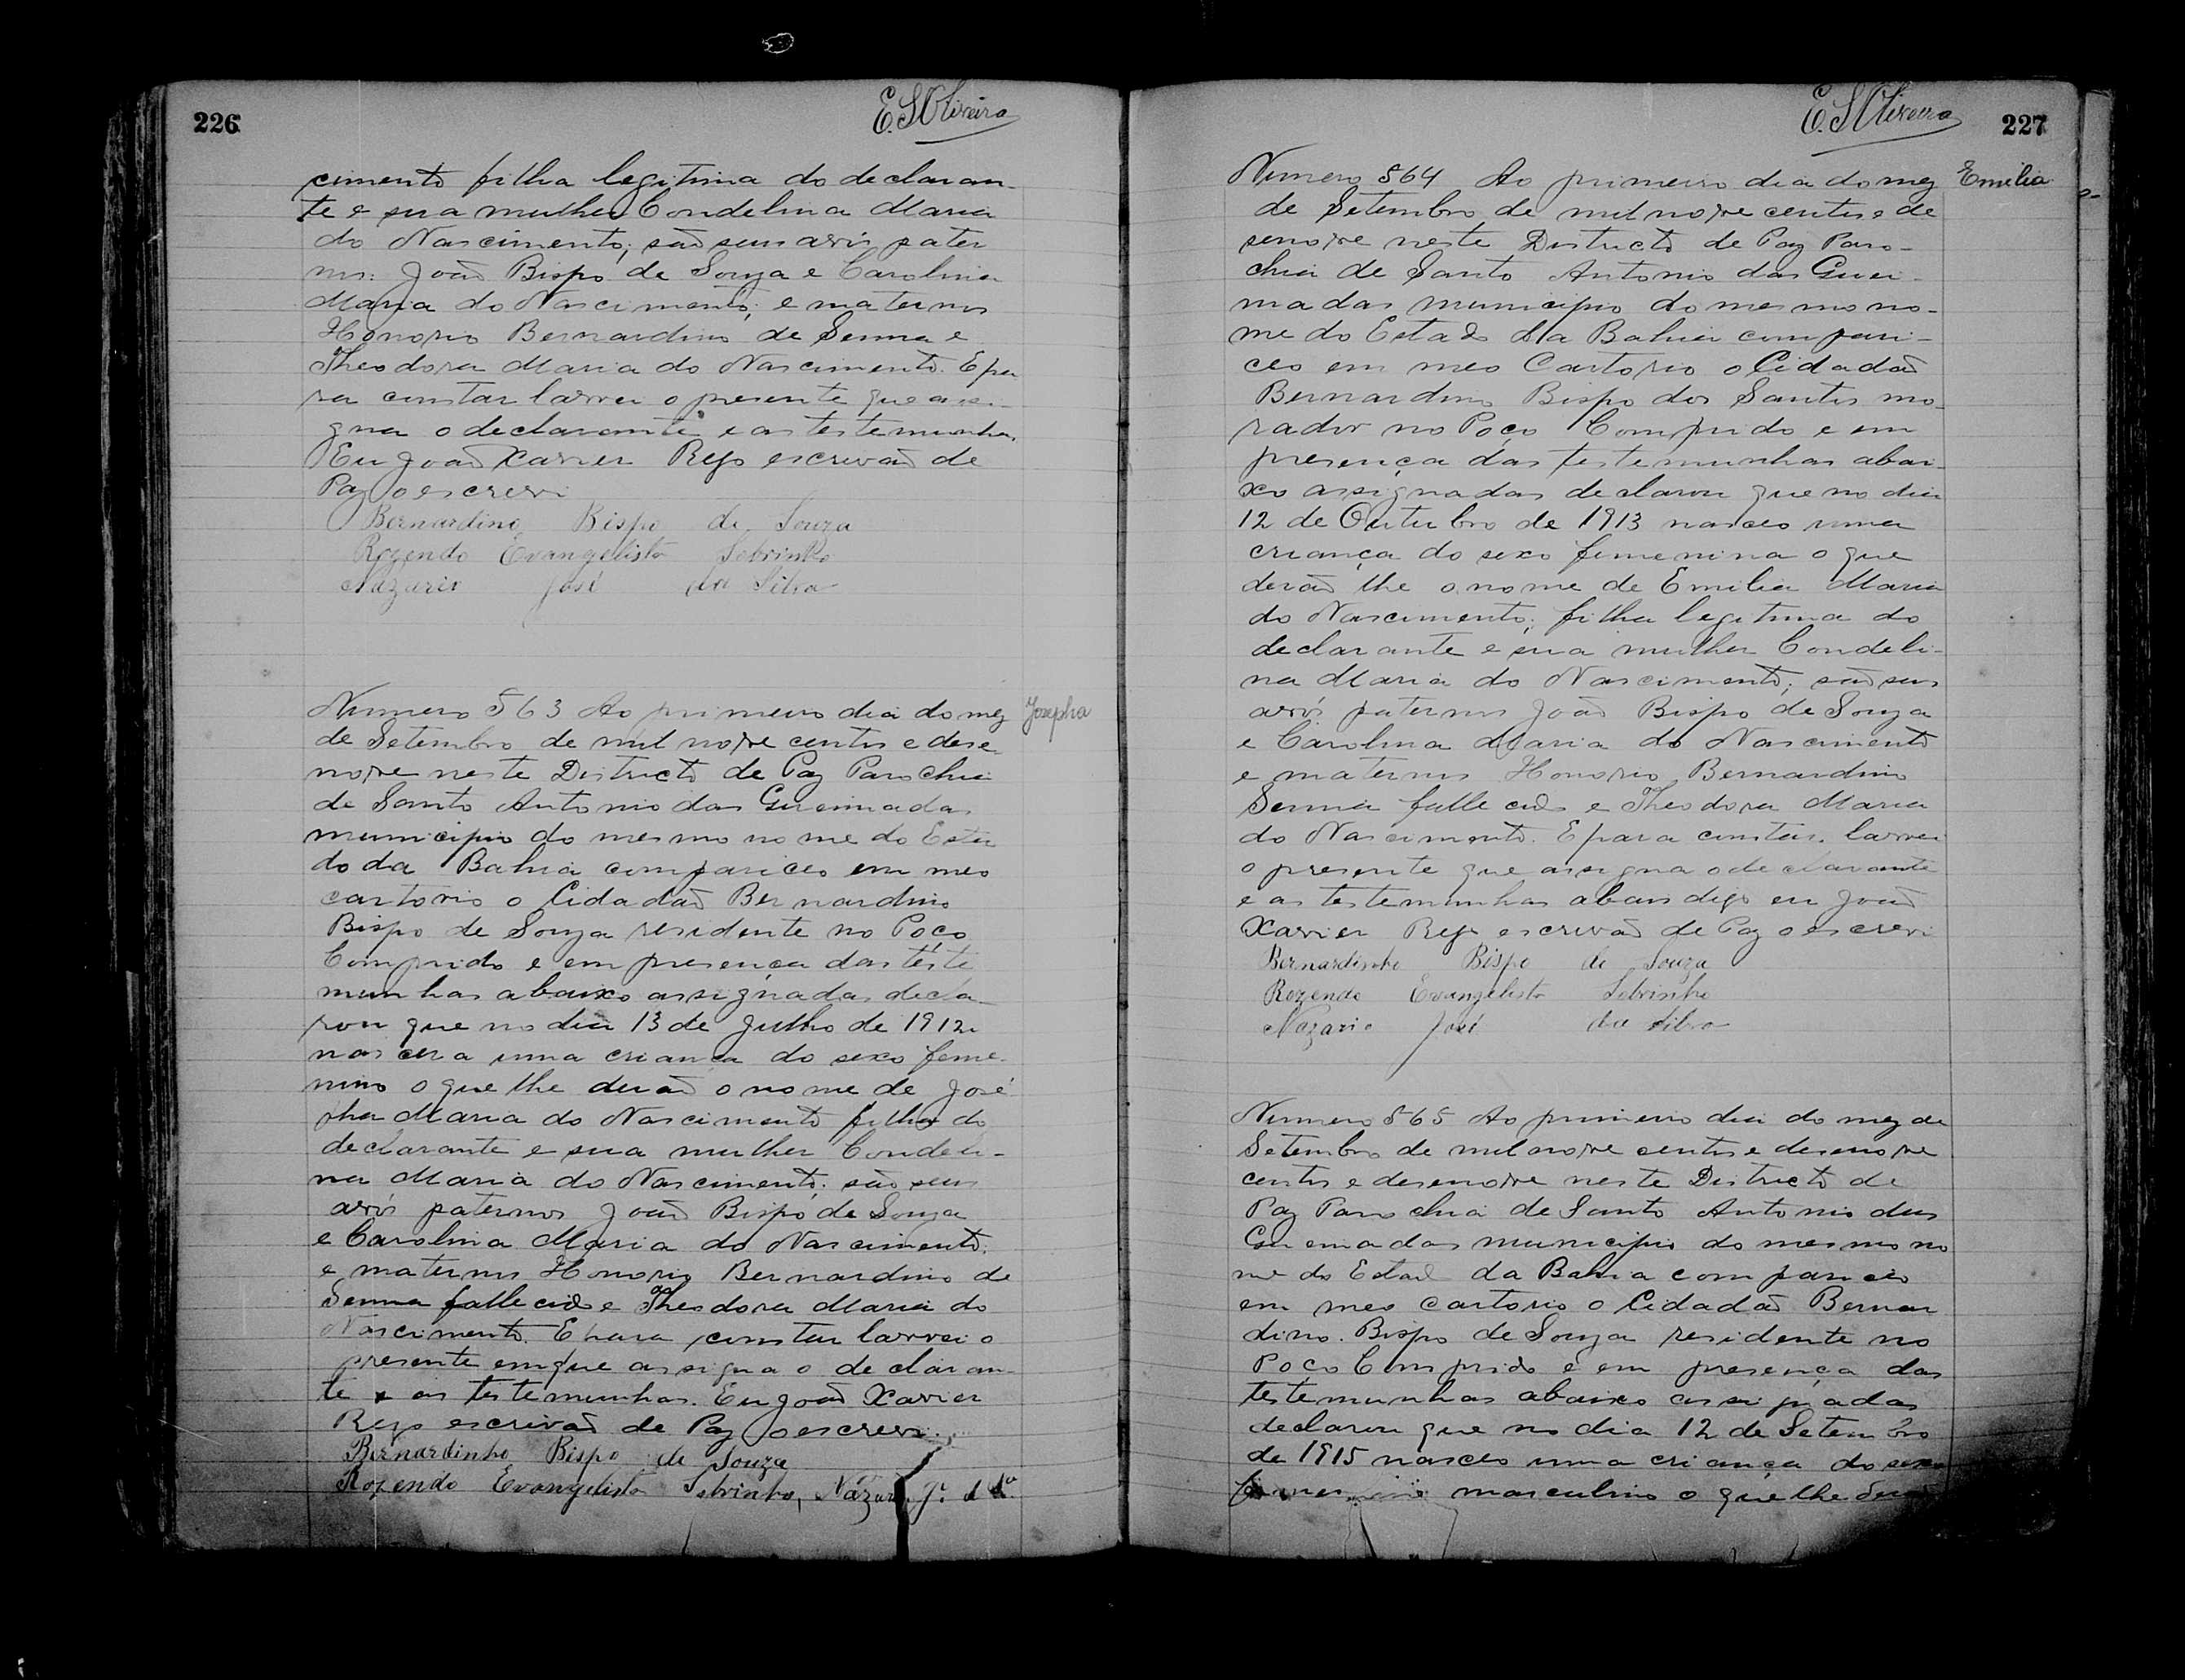 226
E. S. Oliveira
cimento filha legitima do declaran-
te e sua mulher Condelina Maria
do Nascimento; são seus avós pater
nos: João Bispo de Souza e Carolina
Maria do Nascimento; e maternos
Honorio Bernardino de Senna e
Theodora Maria do Nascimento. E pa
ra constar lavrei o presente que assi-
gna o declarante e as testemunhas.
Eu João Xavier Rego escrivaõ de
Paz o escrevi
Bernardino Bispo de Souza
Rozendo Evangelista Sobrinho
Nazario José da Silva
Numero 563 Ao primeiro dia do mez
Josepha
de Setembro de mil nove centos e dese
nove neste Districto de Paz Parochia
de Santo Antonio das Queimadas
municipio do mesmo nome do Esta
do da Bahia compariceo em meo
cartorio o Cidadaõ Bernardino
Bispo de Souza residente no Poço
Comprido e em presença das teste
munhas abaixo assignadas decla-
rou que no dia 13 de Julho de 1912
nascera uma criança do sexo feme-
nino o que lhe deraõ o nome de José
pha Maria do Nascimento filha do
declarante e sua mulher Condeli-
na Maria do Nascimento; são seus
avós paternos João Bispo de Souza
e Carolina Maria do Nascimento;
e maternos Honorio Bernardino de
Senna fallecido e Theodora Maria do
Nascimento. E para constar lavrei o
presente em que assigna o declaran-
te e as testemunhas. Eu João Xavier
Rego escrivaõ de Paz o escrevi.
Bernardinho Bispo de Souza
Rozendo Evangelista Sobrinho,
E. S. Oliveira
227
Numero 564 Ao primeiro dia do mez
Emilia
de Setembro de mil nove centos e de
senove neste Districto de Paz Paro-
chia de Santo Antonio das Quei-
madas municipio do mesmo no-
me do Estado da Bahia compari-
ceo em meo Cartorio o Cidadaõ
Bernardino Bispo dos Santos mo-
rador no Poço Comprido e em
presença das testemunhas abai-
xo assignadas declarou que no dia
12 de Outubro de 1913 nasceo uma
criança do sexo femenina o que
deraõ lhe o nome de Emilia Maria
do Nascimento; filha legitima do
declarante e sua mulher Condeli-
na Maria do Nascimento; são seus
avós paternos João Bispo de Souza
e Carolina Maria do Nascimento
e maternos Honorio Bernardino
Senna fallecido e Theodora Maria
do Nascimento. E para constar lavrei
o presente que assigna o declarante
e as testemunhas abaix digo eu João
Xavier Rego escrivaõ de Paz o escrevi
Bernardinho Bispo de Souza
Rozendo Evangelista Sobrinho
Nazario José da Silva
Numero 565 Ao primeiro dia do mez de
Setembro de mil nove centos e desenove
centos e desenove neste Districto de
Paz Parochia de Santo Antonio das
Queimadas municipio do mesmo no
me do Estado da Bahia compariceo
em meo cartorio o Cidadaõ Bernar
dino Bispo de Souza residente no
Poço Comprido e em presença das
testemunhas abaixo assignadas
declarou que no dia 12 de Setembro
de 1915 nasceo uma criança do sexo
masculino o que lhe deraõ